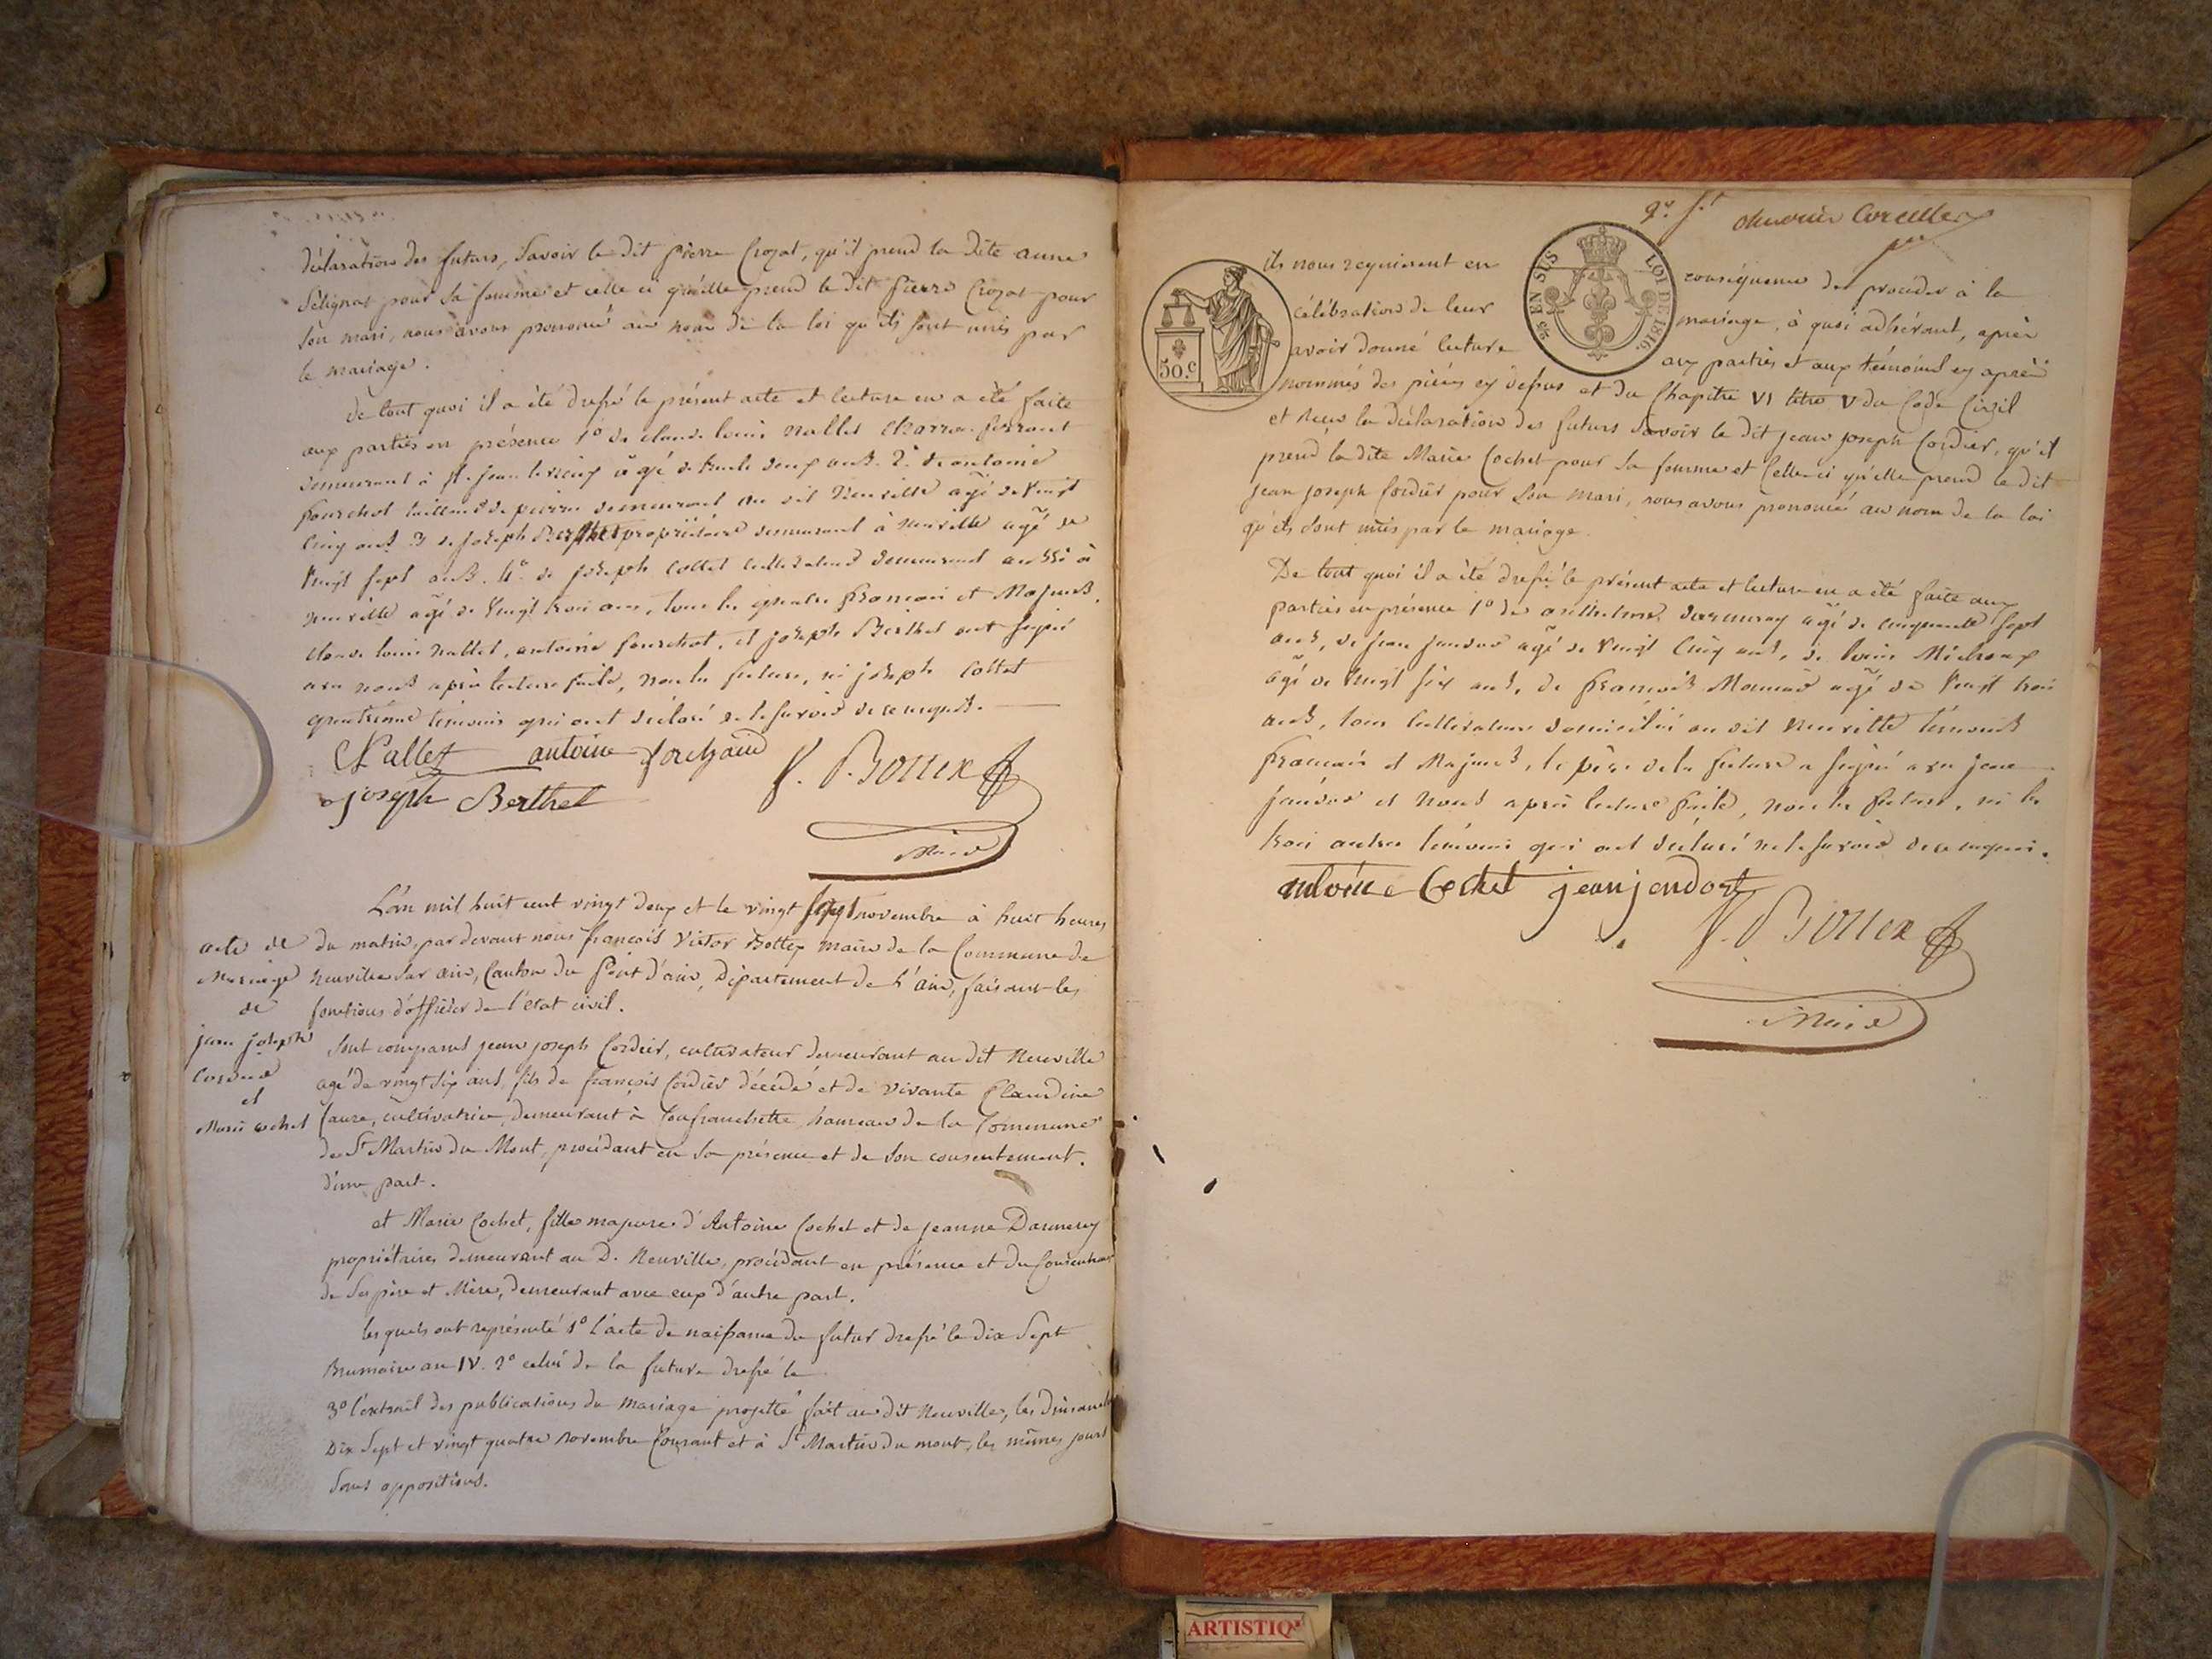 déclaration des futurs, Savoir le dit pierre Crozat, qu'il prend la dite anne
Sélignat pour sa femme et celle ci qu'elle prend le dit pierre Crozat pour
son mari, nous avons prononcé au nom de la loi qu'ils sont unis par
le mariage.
de tout quoi il a été dressé le présent acte et lecture en a été faite
aux parties en présence 1o de claude louis Nallet ferrant
demeurant à St. jean le vieux agé de trente deux ans. 2o de antoine
fourchet tailleur de pierre demeurant au dit Neuville agé de vingt
cinq ans 3 de joseph Berthet propriétaire demeurant à neuville agé de
vingt sept ans. 4o. de joseph Collet cultivateur demeurant aussi à
neuville agé de vingt trois ans, tous les quatre français et Majeurs,
claude louis nallet, antoine fourchet, et joseph Berthet ont signé
avec nous après lecture faite, non les futurs, ni joseph Collet
quatrième témoin qui ont déclaré ne le savoir de ce requis.
Nallet antoine forchaid
joseph Berthet
V. Bottex
Maire
L'an mil huit cent vingt deux et le vingt sept novembre à huit heures
du matin, par devant nous françois Victor Bottex maire de la Commune de
neuville sur ain, Canton du Pont d'ain, Département de l'ain, faisant les
fonctions d'officier de l'état civil.
acte de
Mariage
de
jean joseph
Cordier
et
Marie cochet
Sont comparus jean joseph Cordier, cultivateur demeurant au dit Neuville
agé de vingt six ans, fils de françois Cordier décédé et de vivante Claudine
faure, cultivatrice, demeurant à Confranchette hameau de la Commune
de St Martin du Mont, procédant en sa présence et de son consentement.
d'une part.
et Marie Cochet, fille majeure d'Antoine Cochet et de jeanne Darmerey
propriétaires demeurant au D. Neuville, procédant en présence et du
de ses père et Mère, demeurant avec eux d'autre part.
les quels ont représenté 1o l'acte de naissance du futur dressé le dix Sept
Brumaire an IV. 2o celui de la future dressé le
3o l'extrait des publications du mariage projetté fait au dit Neuville, les Dimanches
Dix Sept et vingt quatre novembre Courant et à St Martin du mont, les mêmes jours
Sans oppositions.
50.c
25 EN SUS LOI DE 1816.
ils nous requierent en conséquence de procéder à la
célébration de leur mariage, à quoi adhérant, après
avoir donné lecture aux parties et aux témoins cy après
nommés des pièces cy dessus et du Chapitre VI titre V du Code Civil
et reçu la déclaration des futurs Savoir le dit jean joseph Cordier, qu'il
prend la dite Marie Cochet pour sa femme et Celle-ci qu'elle prend le dit
jean joseph Cordier pour Son Mari, nous avons prononcé au nom de la loi
qu'ils sont unis par le mariage.
De tout quoi il a été dressé le présent acte et lecture en a été faite aux
parties en présence 1o de darmerey agé de cinquante sept
ans, de jean agé de vingt cinq ans, de louis Michoux
agé de vingt six ans, de françois agé de vingt trois
ans, tous cultivateurs domiciliés au dit neuville témoins
français et Majeurs, le père de la future a signé avec jean
et nous après lecture faite, non les futurs, ni les
trois autres témoins qui ont déclaré ne le savoir de ce requis.
antoine Cochet jean jendost
V. Bottex
Maire
ARTISTIQ